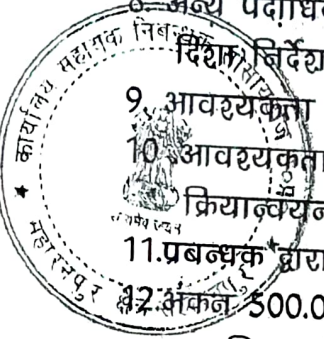 8. अन्य पदाधि
दिशा निर्देश
9. आवश्यकता
10. आवश्यकता
क्रियान्वयन
11.प्रबन्धक द्वारा
12.अंकन 500.0
कार्यालय सहायक निबन्धक
सहारनपुर